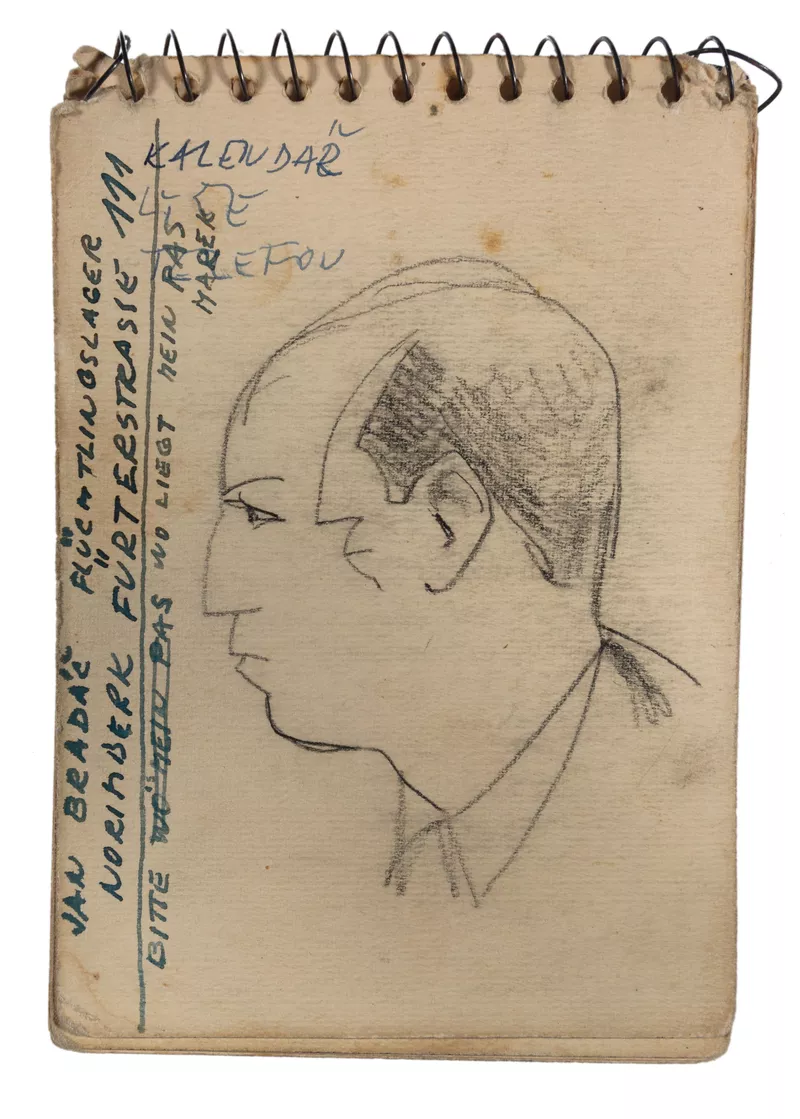 KALENDÁŘ
TELEFON
JAN BRADÁČ FLÜCHTLINGSLAGER
NORIMBERK FÜRTERSTRASSE 111
BITTE WO MEIN PAS WO LIEGT MEIN PAS
MAREK